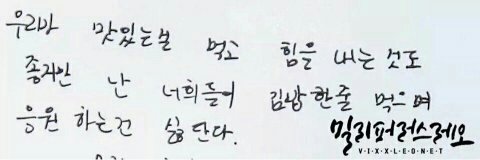 우리만 맛있는걸 먹고 힘을 내는 것도
좋지만 난 너희들이 김밥한줄 먹으며
응원 하는건 싫단다.
밀리퍼러스레오
VIXXLEO.NET